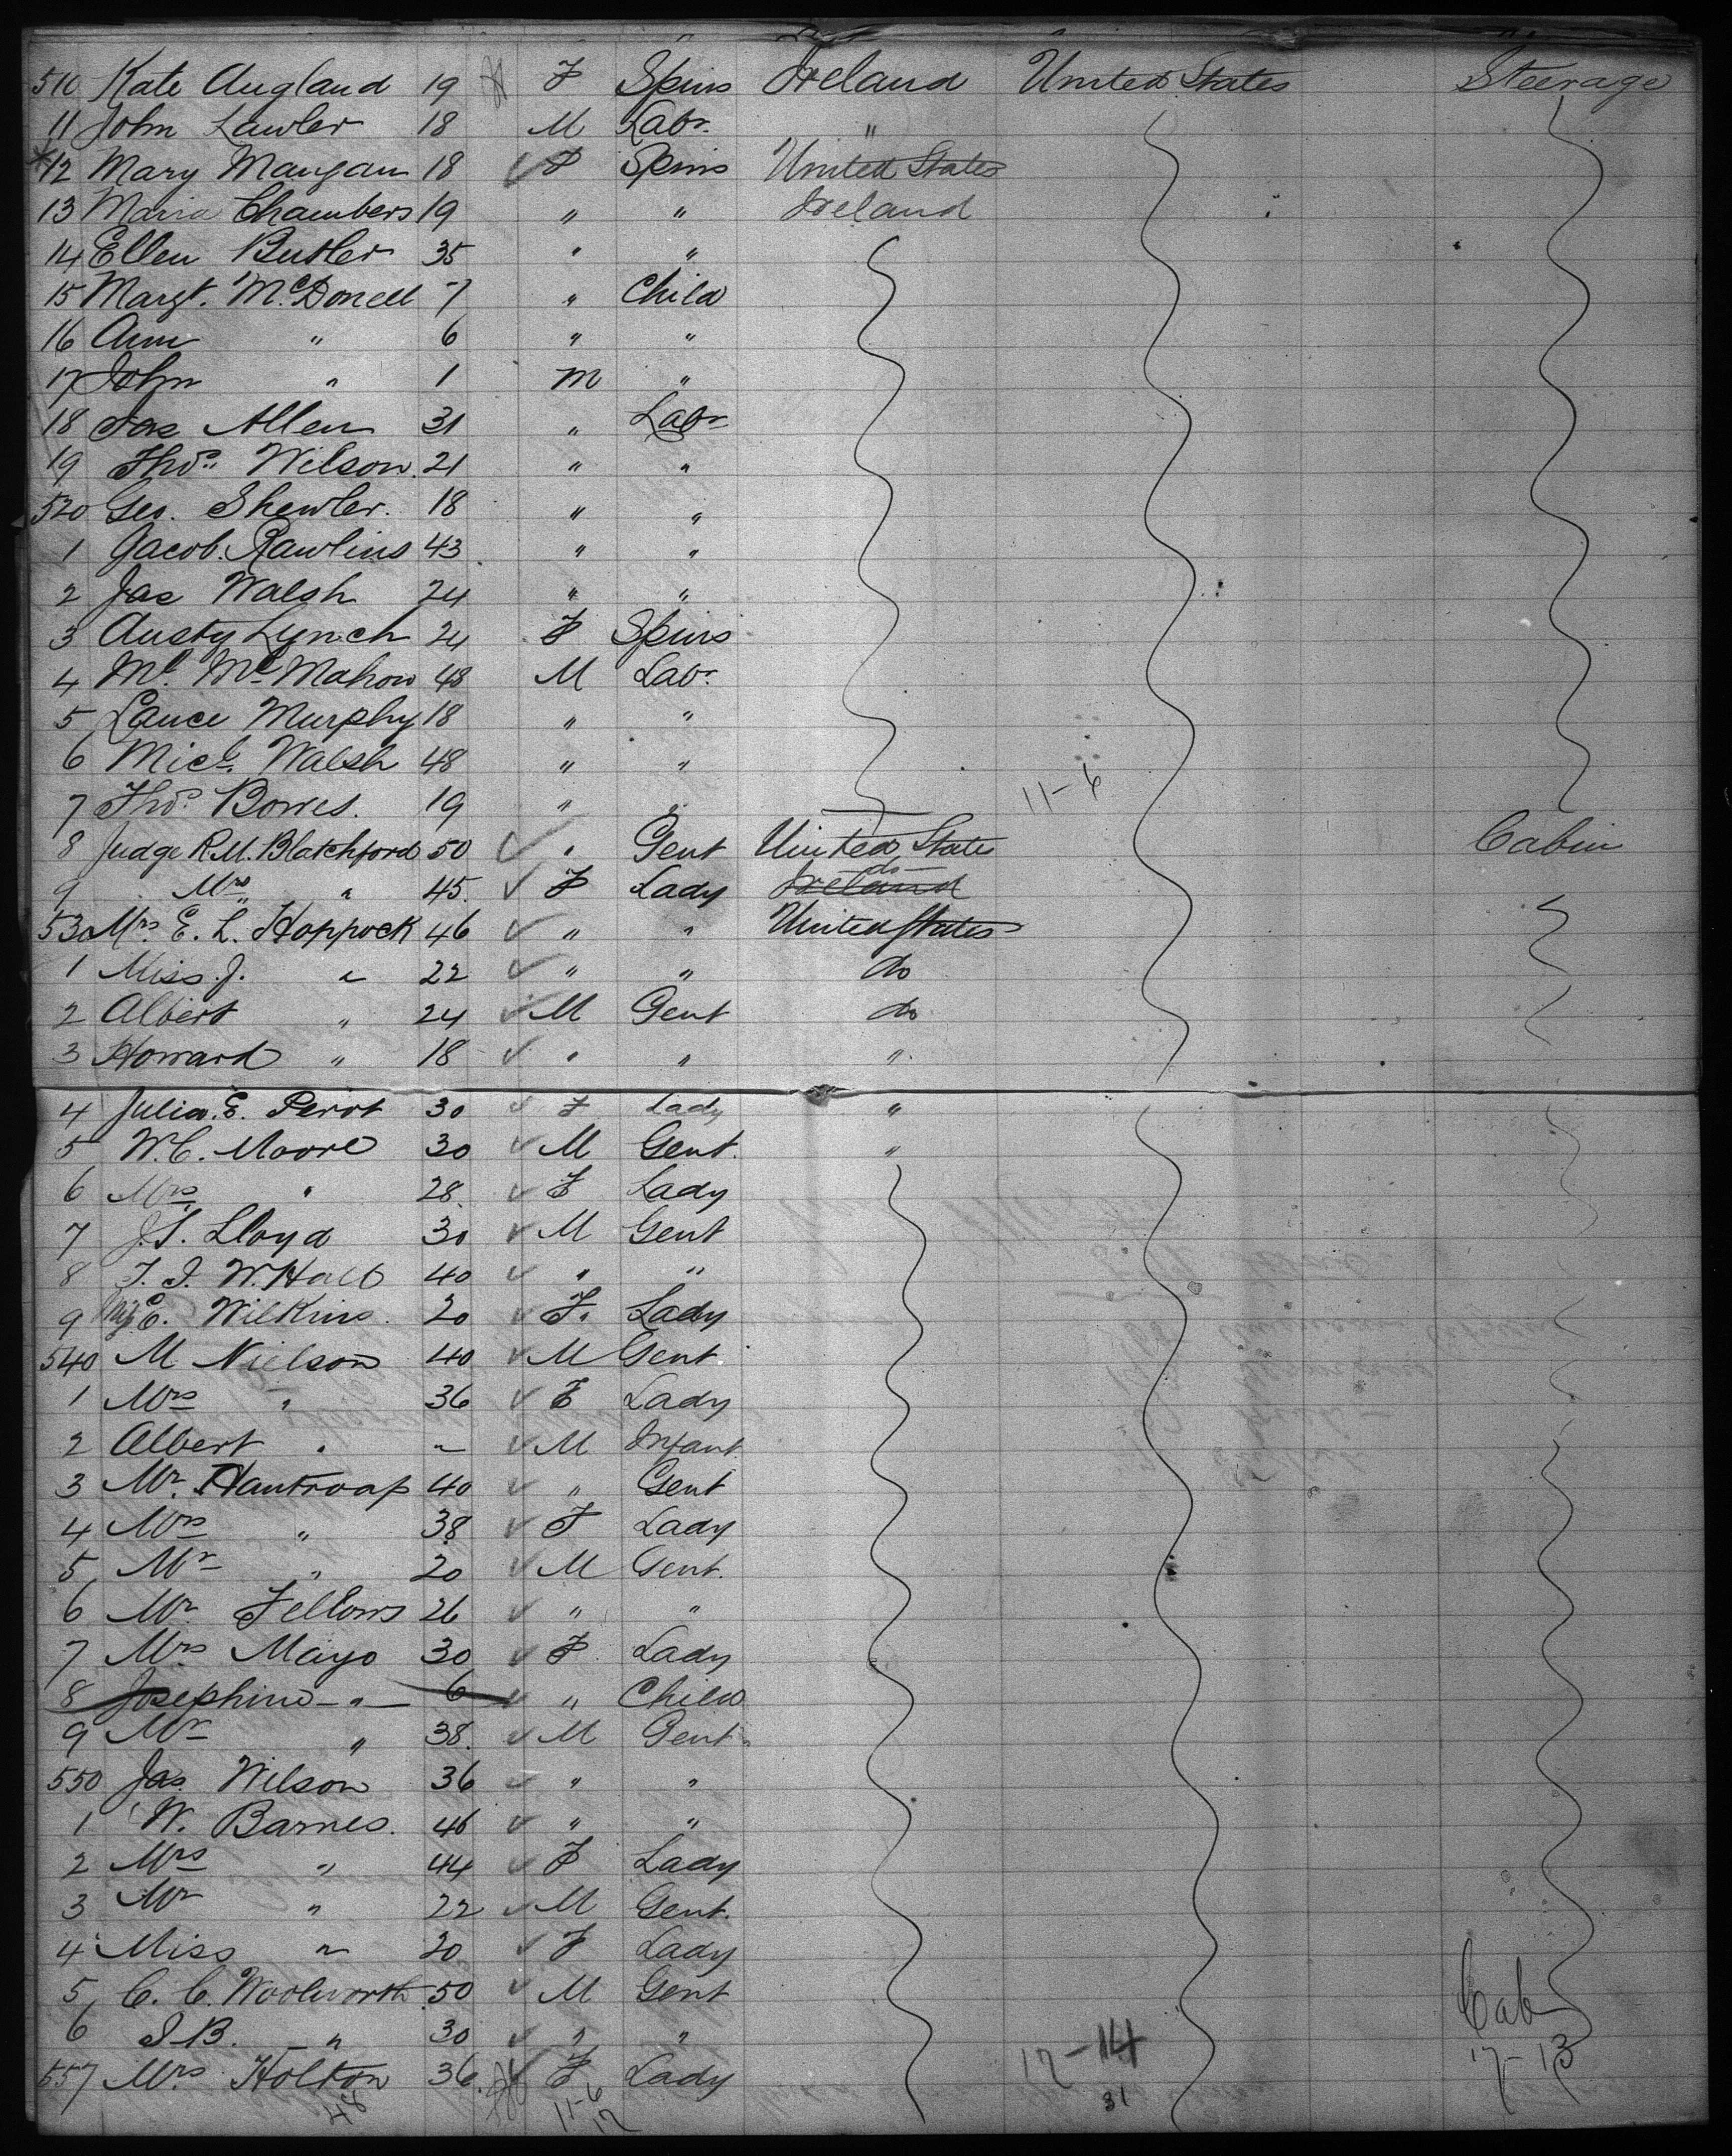 510 Kate Augland 19 F Spins Ireland United States Steerage
11 John Lawler 18 M Labr. "
*12 Mary Mangan 18 ✓ F Spins United States
13 Maria Chambers 19 " " Ireland
14 Ellen Butler 35 " "
15 Margt. McDonell 7 " Child
16 Ann " 6 " "
17 John " 1 M "
18 Jas Allen 31 " Labr
19 Thos. Wilson 21 " "
520 Geo. Shewler. 18 " "
1 Jacob. Rawlins 43 " "
2 Jas Walsh 24 " "
3 Austy Lynch 24 F Spins
4 Ml. McMahon 48 M Labr.
5 Lance Murphy 18 " "
6 Micl. Walsh 48 " "
7 Thos. Bowes. 19 " " 11-6
8 Judge R.M. Blatchford 50 ✓ " Gent United States Cabin
9 Mrs " 45. ✓ F Lady Ireland do
530 Mrs. E. L. Hoppock 46 ✓ " " United States
1 Miss. J. " 22 ✓ " " do
2 Albert " 24 ✓ M Gent do
3 Howard " 18 ✓ " " "
4 Julia. E. Perot 30 ✓ F Lady "
5 W. C. Moore 30 ✓ M Gent. "
6 Mrs " 28 ✓ F Lady
7 J. S. Lloyd 30 ✓ M Gent
8 T. I. W. Hall 40 ✓ " "
9 Miss E. Wilkins. 20 ✓ F. Lady
540 M Nielson 40 ✓ M Gent
1 Mrs " 36 ✓ F Lady
2 Albert " ~ ✓ M Infant
3 Mr. Hantroap 40 ✓ " Gent
4 Mrs " 38 ✓ F Lady
5 Mr " 20 ✓ M Gent.
6 Mr Fellows 26 ✓ " "
7 Mrs Mayo 30 ✓ F Lady
8 Josephine " 6 ✓ " Child
9 Mr " 38. ✓ M Gent
550 Jas Wilson 36 ✓ " "
1 W. Barnes. 46 ✓ " "
2 Mrs " 44 ✓ F Lady
3 Mr " 22 ✓ M Gent.
4 Miss " 20 ✓ F Lady
5 C. C. Woolworth 50 ✓ M Gent Cab
6 I B. " 30 ✓ " "
557 Mrs. Holton 36. ✓ F Lady 17-14 17-13
48 11-6 31
17